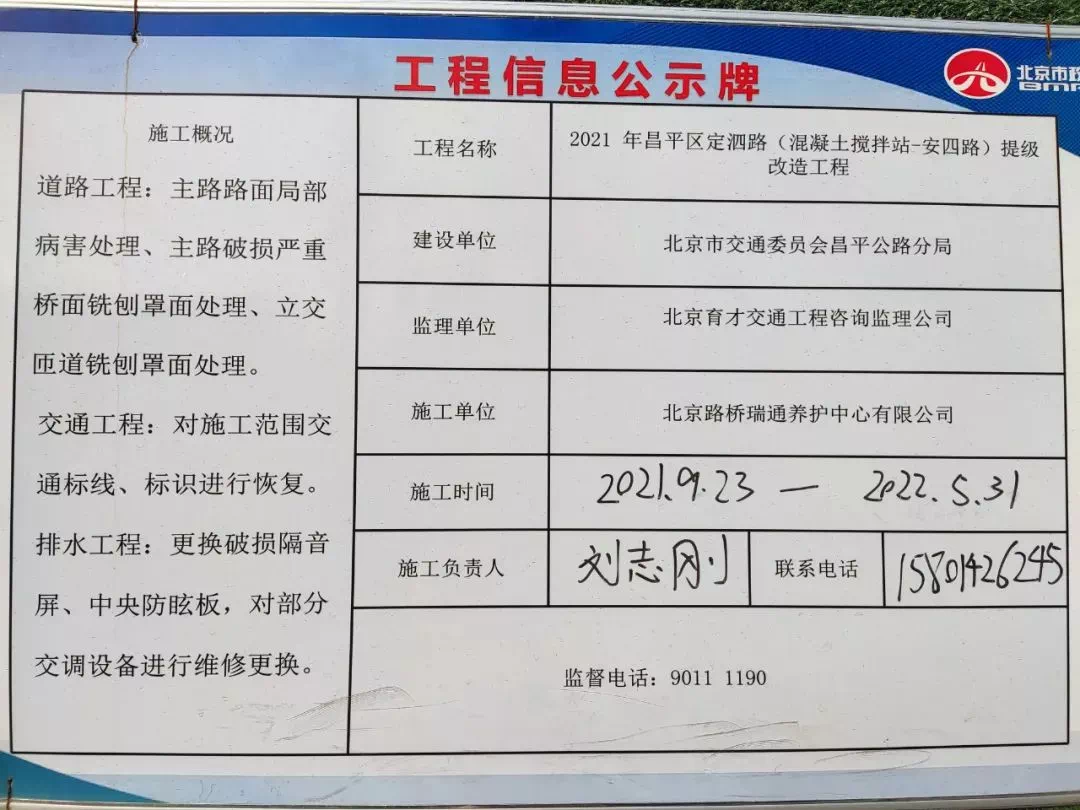 工程信息公示牌
北京市政
施工概况
道路工程：主路路面局部
病害处理、主路破损严重
桥面铣刨罩面处理、立交
匝道铣刨罩面处理。
交通工程：对施工范围交
通标线、标识进行恢复。
排水工程：更换破损隔音
屏、中央防眩板，对部分
交调设备进行维修更换。
工程名称
2021 年昌平区定泗路（混凝土搅拌站-安四路）提级
改造工程
建设单位
北京市交通委员会昌平公路分局
监理单位
北京育才交通工程咨询监理公司
施工单位
北京路桥瑞通养护中心有限公司
施工时间
2021.9.23 — 2022.5.31
施工负责人
刘志刚
联系电话
15801426245
监督电话：9011 1190